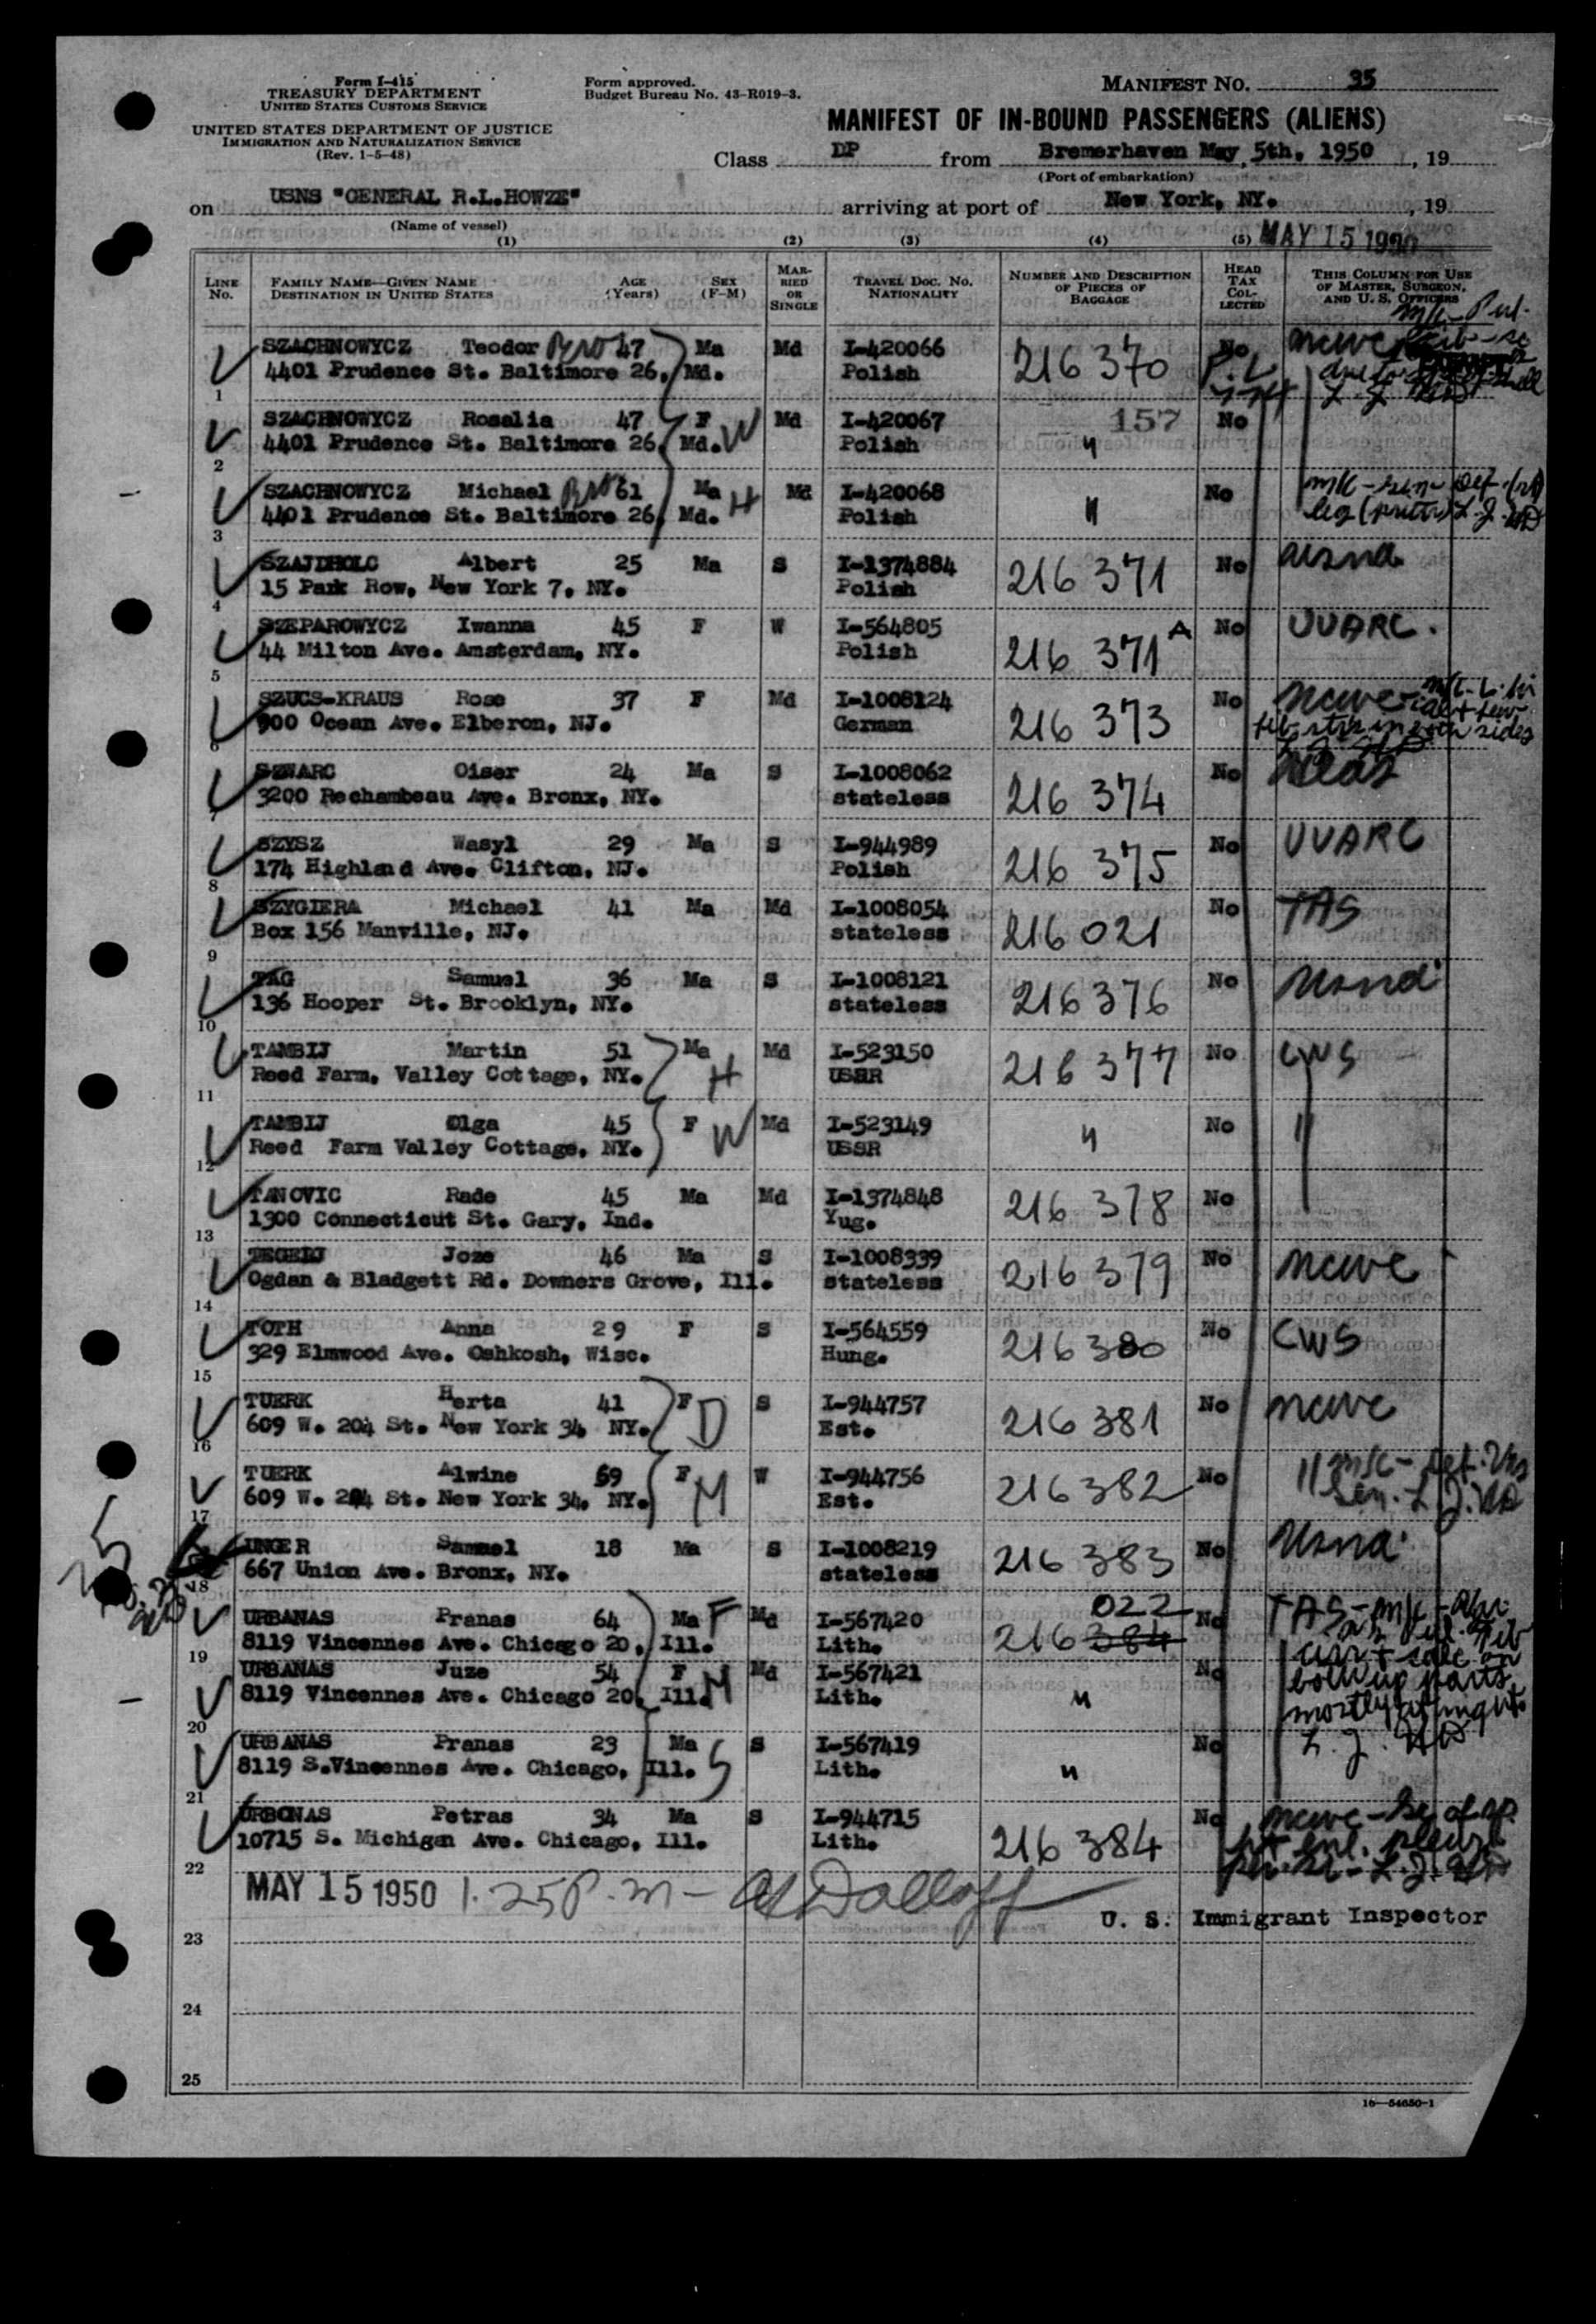 Form I-415
TREASURY DEPARTMENT
UNITED STATES CUSTOMS SERVICE
UNITED STATES DEPARTMENT OF JUSTICE
IMMIGRATION AND NATURALIZATION SERVICE
(Rev. 1-5-48)
Form approved.
Budget Bureau No. 43-R019-3.
MANIFEST NO. 35
MANIFEST OF IN-BOUND PASSENGERS (ALIENS)
Class DP from Bremerhaven May 5th, 1950, 19
(Port of embarkation)
on USNS "GENERAL R.L.HOWZE" arriving at port of New York, NY., 19
(Name of vessel)
MAY 15 1950
(1) (2) (3) (4) (5)
LINE No. FAMILY NAME—GIVEN NAME DESTINATION IN UNITED STATES AGE (Years) SEX (F-M) MARRIED OR SINGLE TRAVEL DOC. NO. NATIONALITY NUMBER AND DESCRIPTION OF PIECES OF BAGGAGE HEAD TAX COLLECTED THIS COLUMN FOR USE OF MASTER, SURGEON, AND U. S. OFFICERS
SZACHNOWYCZ Teodor 47 Ma Md I-420066 216 370 No ncwc
1 4401 Prudence St. Baltimore 26, Md. Polish
SZACHNOWYCZ Rosalia 47 F W Md I-420067 157 No
2 4401 Prudence St. Baltimore 26, Md. Polish "
SZACHNOWYCZ Michael 61 Ma H Md I-420068 " No
3 4401 Prudence St. Baltimore 26, Md. Polish
SZAJDHOLC Albert 25 Ma S I-1374884 216 371 No
4 15 Park Row, New York 7, NY. Polish
SZEPAROWYCZ Iwanna 45 F W I-564805 216 371 A No UUARC.
5 44 Milton Ave. Amsterdam, NY. Polish
SZUCS-KRAUS Rose 37 F Md I-1008124 216 373 No ncwc
6 900 Ocean Ave. Elberon, NJ. German
SZWARC Oiser 24 Ma S I-1008062 216 374 No
7 3200 Rochambeau Ave. Bronx, NY. stateless
SZYSZ Wasyl 29 Ma S I-944989 216 375 No UUARC
8 174 Highland Ave. Clifton, NJ. Polish
SZYGIERA Michael 41 Ma Md I-1008054 216 021 No TAS
9 Box 156 Manville, NJ. stateless
TAG Samuel 36 Ma S I-1008121 216 376 No usna
10 136 Hooper St. Brooklyn, NY. stateless
TAMBIJ Martin 51 Ma H Md I-523150 216 377 No CWS
11 Reed Farm, Valley Cottage, NY. USSR
TAMBIJ Olga 45 F W Md I-523149 " No "
12 Reed Farm Valley Cottage, NY. USSR
TANOVIC Rade 45 Ma Md I-1374848 216 378 No
13 1300 Connecticut St. Gary, Ind. Yug.
TEGELJ Joze 46 Ma S I-1008339 216 379 No ncwc
14 Ogdan & Bladgett Rd. Downers Grove, Ill. stateless
TOTH Anna 29 F S I-564559 216 380 No CWS
15 329 Elmwood Ave. Oshkosh, Wisc. Hung.
TUERK Herta 41 F D S I-944757 216 381 No ncwc
16 609 W. 204 St. New York 34, NY. Est.
TUERK Alwine 69 F M W I-944756 216 382 No "
17 609 W. 204 St. New York 34, NY. Est.
UNGER Samuel 18 Ma S I-1008219 216 383 No usna
18 667 Union Ave. Bronx, NY. stateless
URBANAS Pranas 64 Ma F Md I-567420 216 384 022 No TAS
19 8119 Vincennes Ave. Chicago 20, Ill. Lith.
URBANAS Juze 54 F M Md I-567421 " No
20 8119 Vincennes Ave. Chicago 20, Ill. Lith.
URBANAS Pranas 23 Ma S S I-567419 " No
21 8119 S.Vincennes Ave. Chicago, Ill. Lith.
URBONAS Petras 34 Ma S I-944715 216 384 No ncwc
22 10715 S. Michigan Ave. Chicago, Ill. Lith.
MAY 15 1950 1.25 P.m —
U. S. Immigrant Inspector
23
24
25
16—54650-1